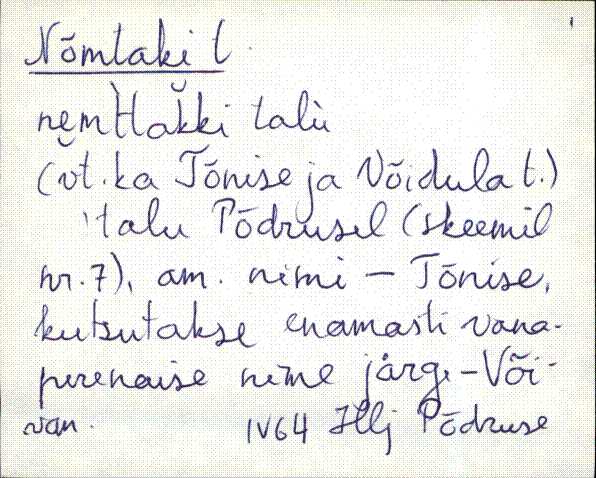 Nõmtaki t.
nemttakki talu
(vt. ka Tõnise ja Võidula t.)
talu Põdrusel (skeemil
nr. 7), am. nimi – Tõnise,
kutsutakse enamasti vana-
perenaise nime järgi – Või-
van. IV64 Hlj Põdruse